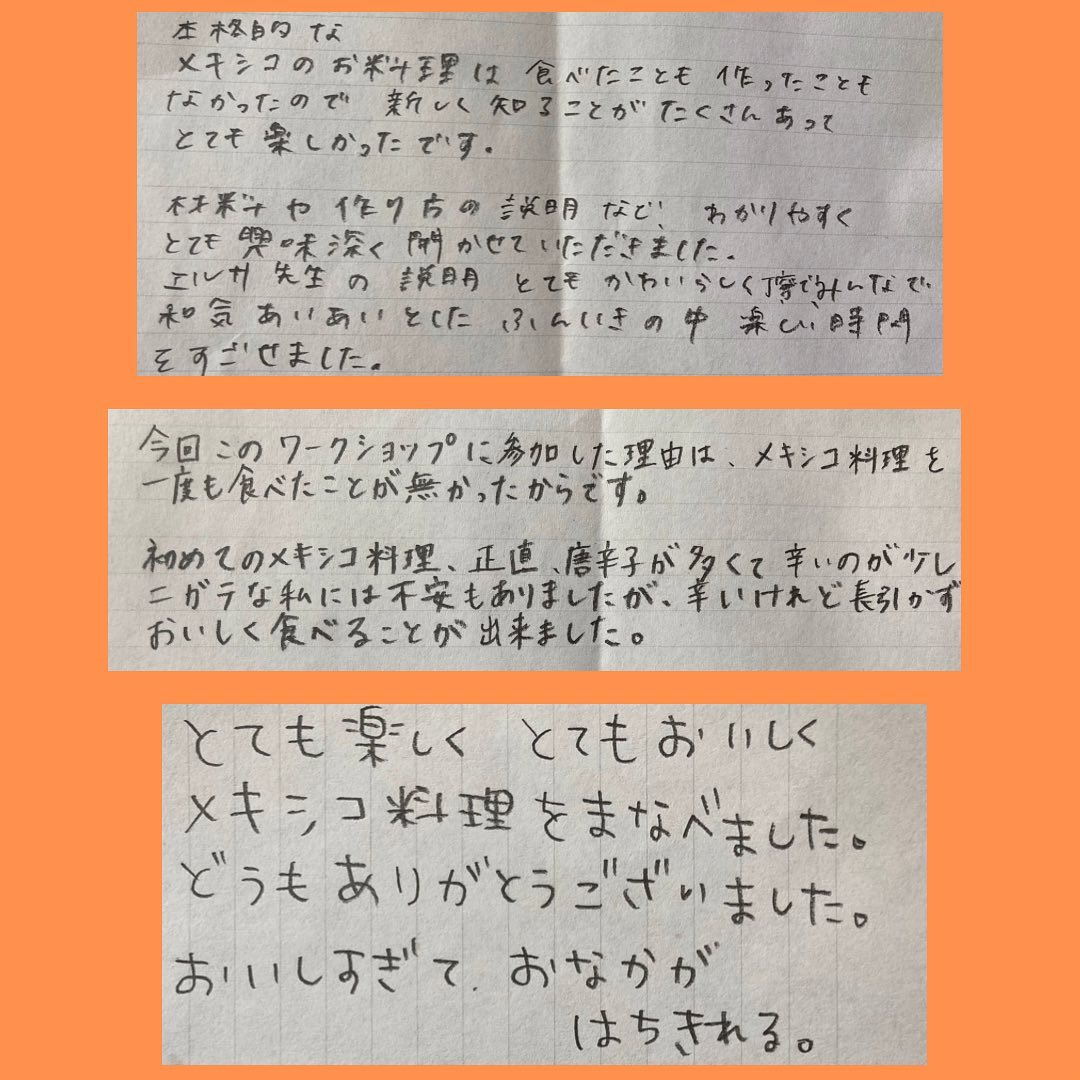 本格的な
メキシコのお料理は 食べたことも 作ったことも
なかったので 新しく知ることがたくさんあって
とても楽しかったです。
材料や作り方の説明など、わかりやすく
とても興味深く聞かせていただきました。
エルサ先生の説明 とてもかわいらしく丁寧でみんなで
和気あいあいとした ふんいきの中 楽しい時間
をすごせました。
今回このワークショップに参加した理由は、メキシコ料理を
一度も食べたことが無かったからです。
初めてのメキシコ料理、正直、唐辛子が多くて辛いのが少し
ニガテな私には不安もありましたが、辛いけれど長引かず
おいしく食べることが出来ました。
とても楽しく とてもおいしく
メキシコ料理をまなべました。
どうもありがとうございました。
おいしすぎて、おなかが
はちきれる。